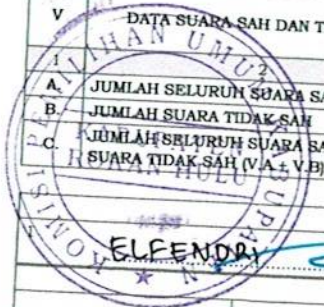 V DATA SUARA SAH DAN T
1 2
A. JUMLAH SELURUH SUARA SA
B. JUMLAH SUARA TIDAK SAH
C. JUMLAH SELURUH SUARA SA
SUARA TIDAK SAH (V.A + V.B)
KOMISI PEMILIHAN UMUM KABUPATEN
ROKAN HULU
ELFENDRI